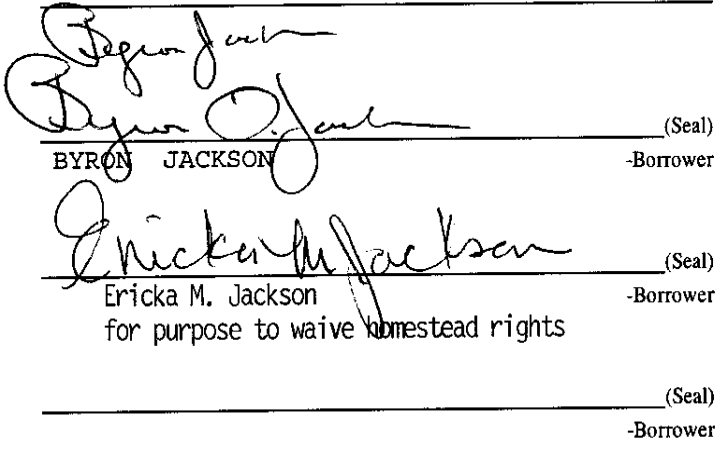 Byron Jack
Byron O. Jack (Seal)
BYRON JACKSON -Borrower
Ericka M Jackson (Seal)
Ericka M. Jackson -Borrower
for purpose to waive homestead rights
(Seal)
-Borrower